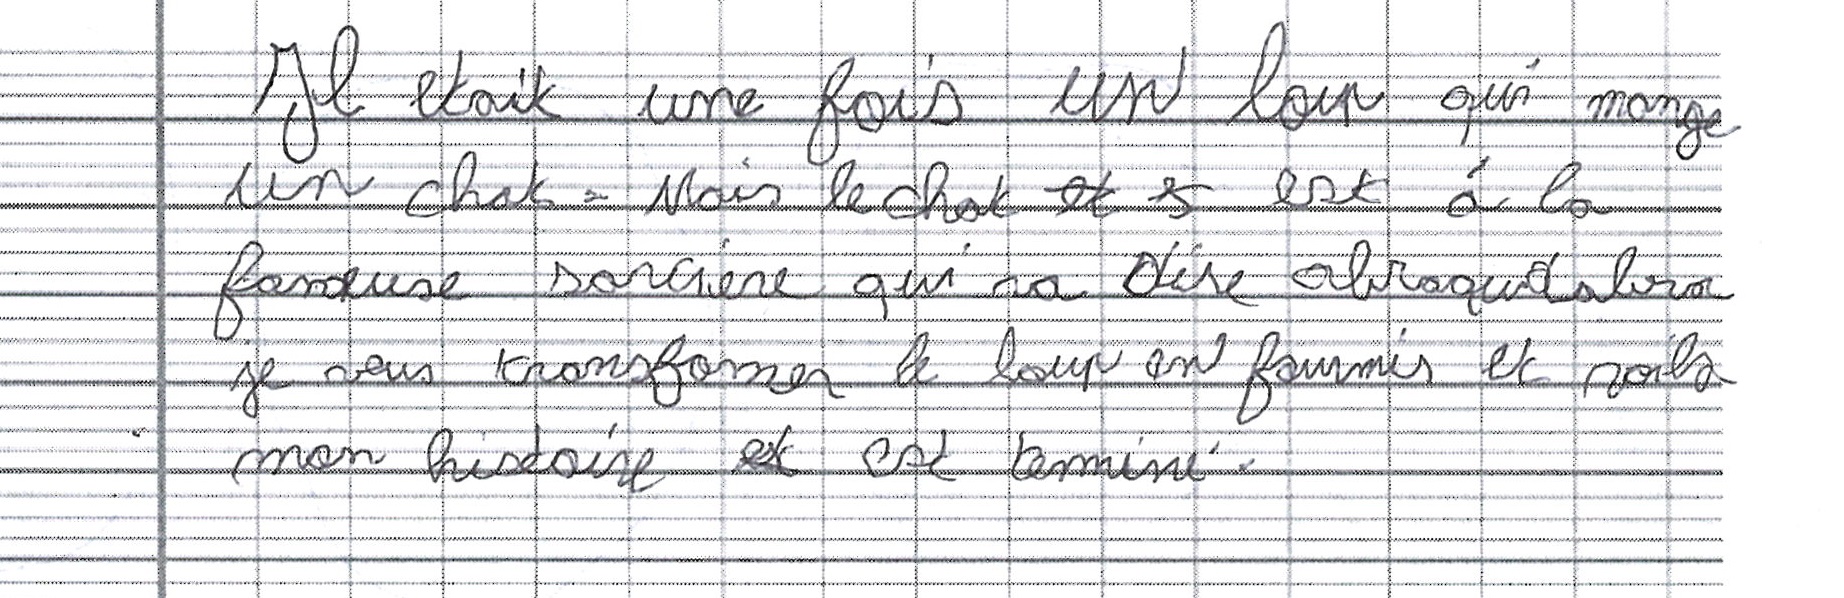 Il etait une fois un loup qui mange
un chat. Mais le chat est à la
fameuse sorcière qui va dire abraqudabra
je veus transfomer le loup en fourmis et voila
mon histoire est terminé.